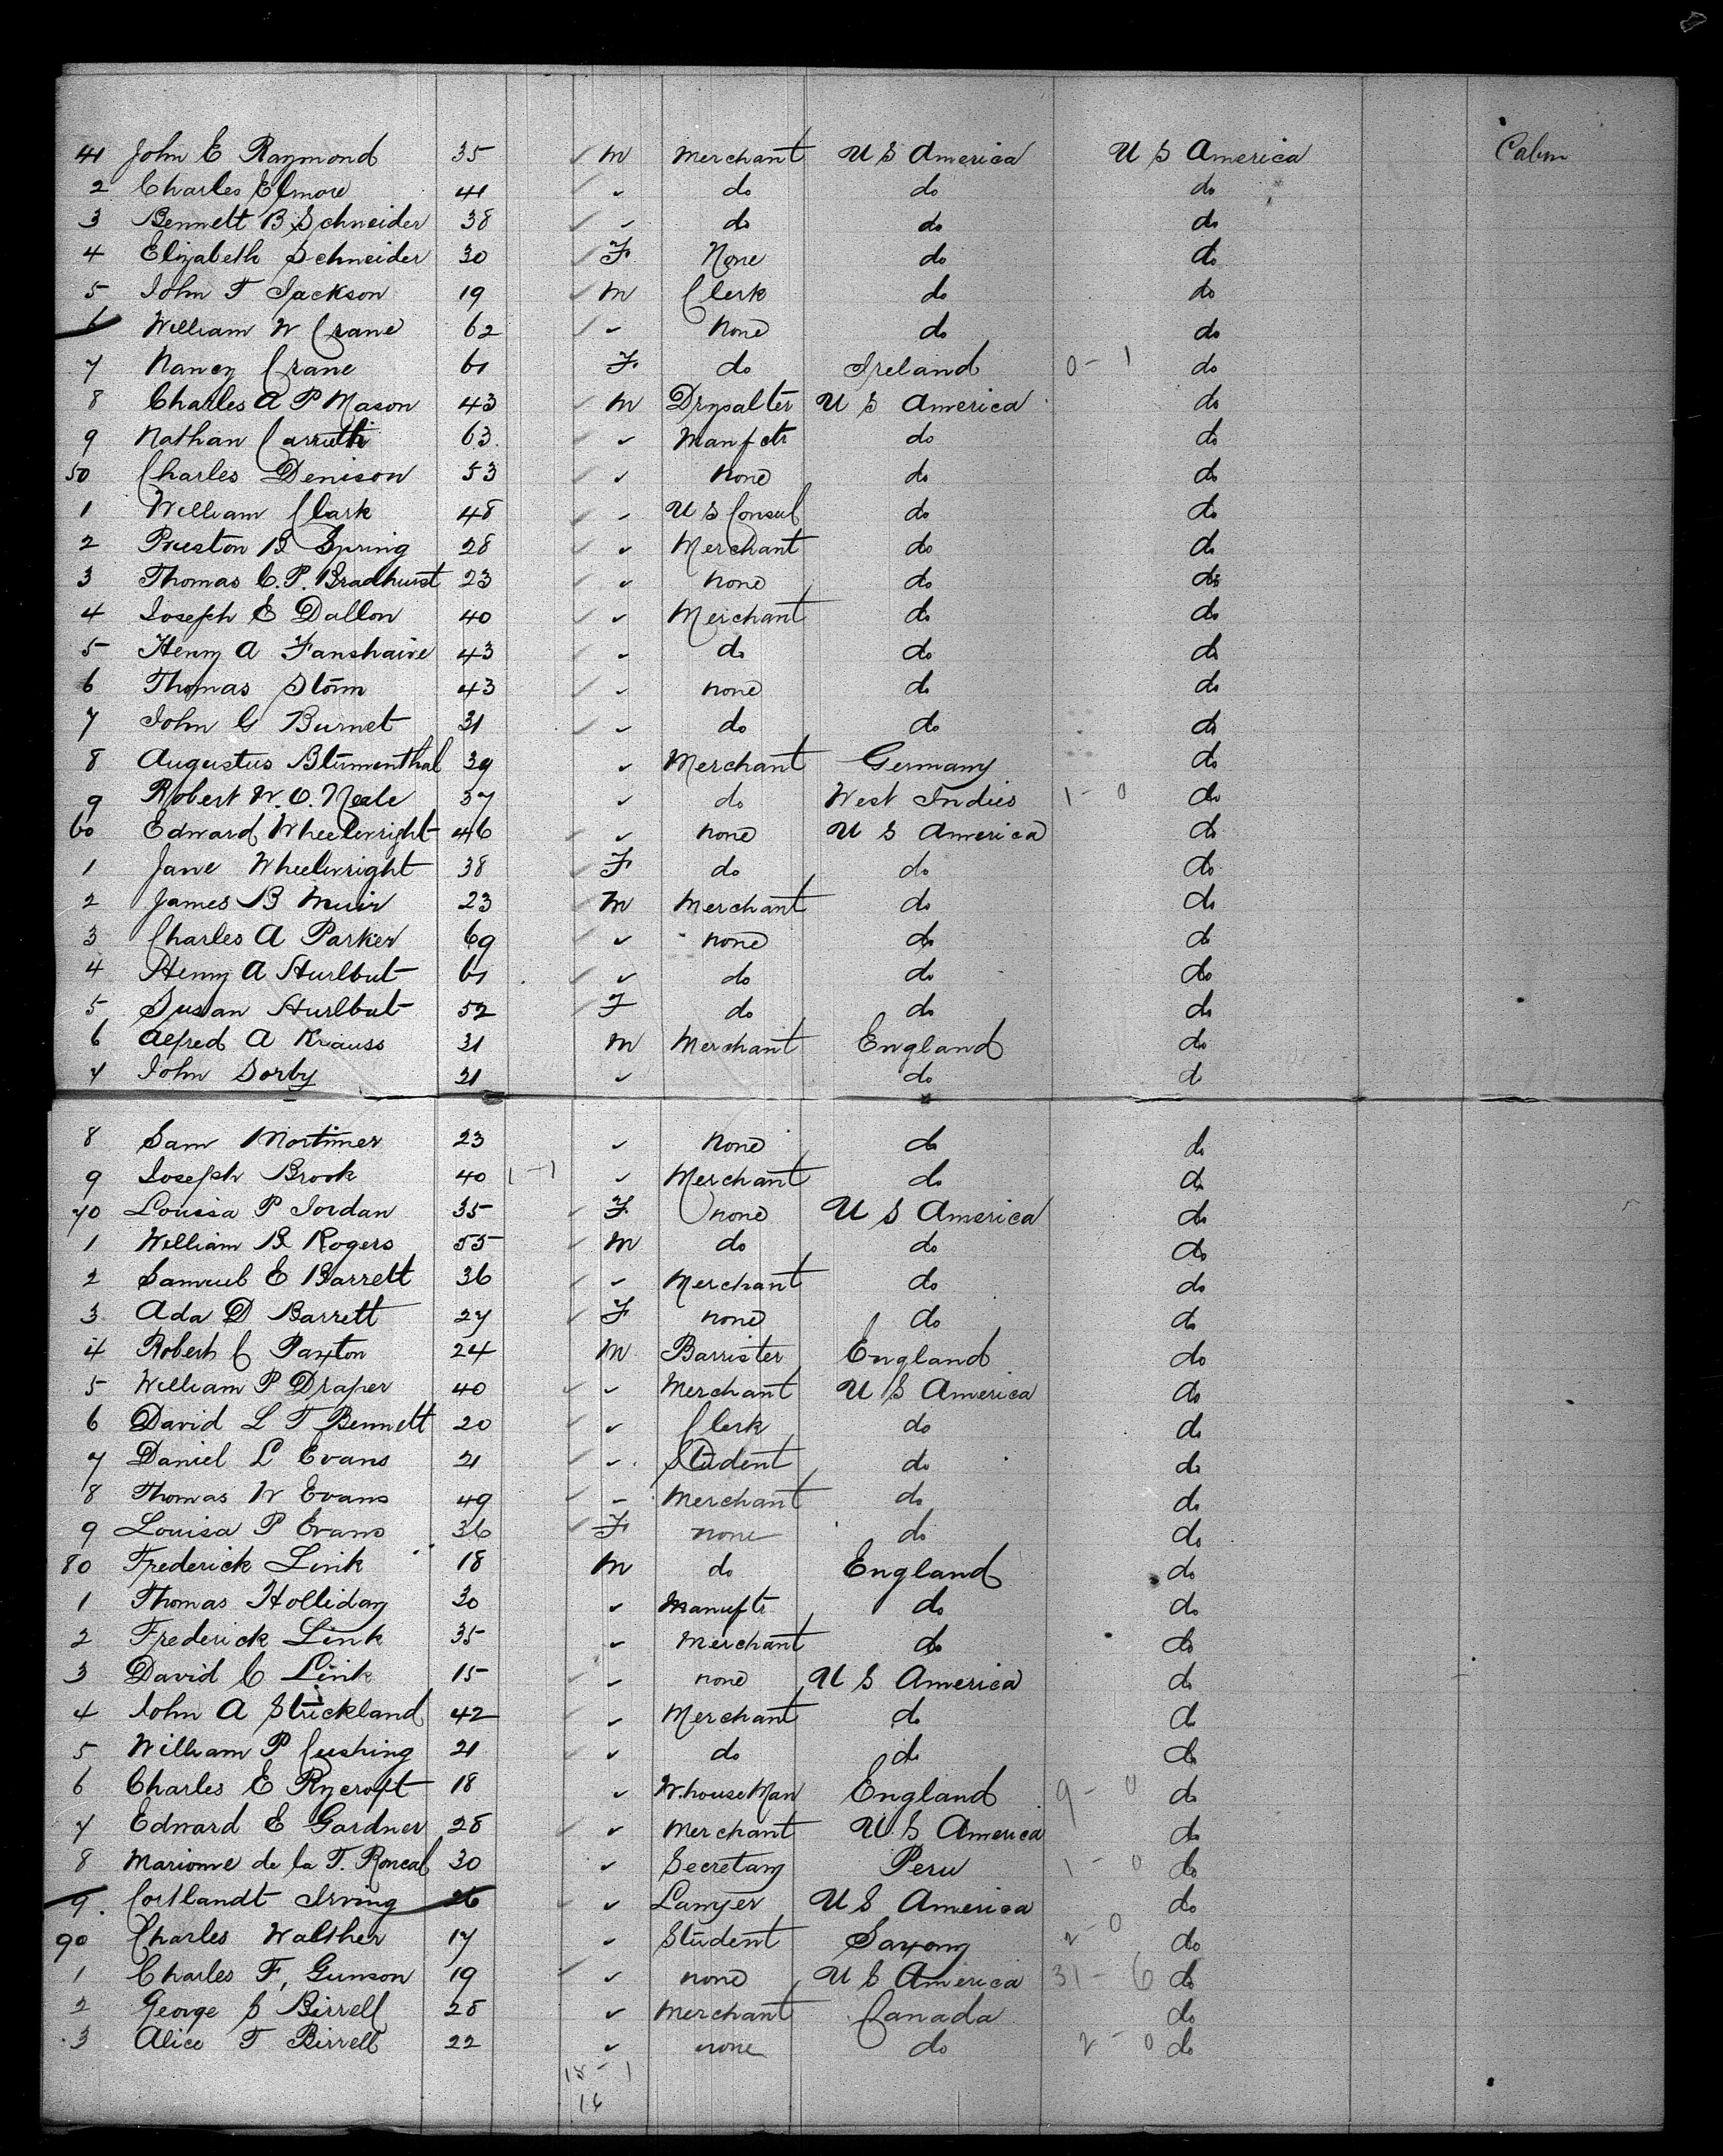 41 John E Raymond 35 ✓ M Merchant U S America U S America Cabin
2 Charles Elmore 41 ✓ ✓ do do do
3 Bennett B Schneider 38 ✓ ✓ do do do
4 Elizabeth Schneider 30 ✓ F None do do
5 John T Jackson 19 ✓ M Clerk do do
6 William W Crane 62 ✓ ✓ None do do
7 Nancy Crane 61 F do Ireland 0 - 1 do
8 Charles A P Mason 43 ✓ M Drysalter U S America do
9 Nathan Carruth 63 ✓ ✓ Manfctr do do
50 Charles Denison 53 ✓ ✓ None do do
1 William Clark 48 ✓ ✓ U S Consul do do
2 Preston B Spring 28 ✓ ✓ Merchant do do
3 Thomas C. P. Bradhurst 23 ✓ ✓ none do do
4 Joseph E Dallon 40 ✓ ✓ Merchant do do
5 Henry A Fanshaive 43 ✓ ✓ do do do
6 Thomas Storm 43 ✓ ✓ none do do
7 John G Burnet 31 ✓ ✓ do do do
8 Augustus Blumenthal 39 ✓ Merchant Germany do
9 Robert W. O. Neale 37 ✓ do West Indies 1 - 0 do
60 Edward Wheelwright 46 ✓ ✓ none U S America do
1 Jane Wheelwright 38 ✓ F do do do
2 James B Muir 23 ✓ M Merchant do do
3 Charles A Parker 69 ✓ ✓ none do do
4 Henry A Hurlbut 61 ✓ ✓ do do do
5 Susan Hurlbut 52 ✓ F do do do
6 Alfred A Krauss 31 M Merchant England do
7 John Sorby 21 ✓ do do
8 Sam Mortimer 23 ✓ none do do
9 Joseph Brook 40 1 - 1 ✓ Merchant do do
70 Louisa P Jordan 35 ✓ F none U S America do
1 William B Rogers 55 ✓ M do do do
2 Samuel E Barrett 36 ✓ ✓ Merchant do do
3 Ada D Barrett 27 ✓ F none do do
4 Robert C Paxton 24 M Barrister England do
5 William P Draper 40 ✓ ✓ Merchant U S America do
6 David L T Bennett 20 ✓ ✓ Clerk do do
7 Daniel L Evans 21 ✓ ✓ Student do do
8 Thomas W Evans 49 ✓ ✓ Merchant do do
9 Louisa P Evans 36 ✓ F none do do
80 Frederick Link 18 M do England do
1 Thomas Holliday 30 ✓ Manuftr do do
2 Frederick Link 35 ✓ Merchant do do
3 David C Link 15 ✓ ✓ none U S America do
4 John A Strickland 42 ✓ ✓ Merchant do do
5 William P Cushing 21 ✓ ✓ do do do
6 Charles E Rycroft 18 ✓ W.houseMan England 9 - 0 do
7 Edward E Gardner 28 ✓ ✓ Merchant U.S America do
8 Mariome de la T. Roncal 30 ✓ Secretary Peru 1 - 0 do
9. Cortlandt Irving 26 ✓ ✓ Lawyer U S America do
90 Charles Walther 17 ✓ Student Saxony 2 - 0 do
1 Charles F, Gunson 19 ✓ ✓ none U S America 31 - 6 do
2 George S Birrell 28 ✓ Merchant Canada do
3 Alice T Birrell 22 ✓ none do 2 - 0 do
15 - 1
16